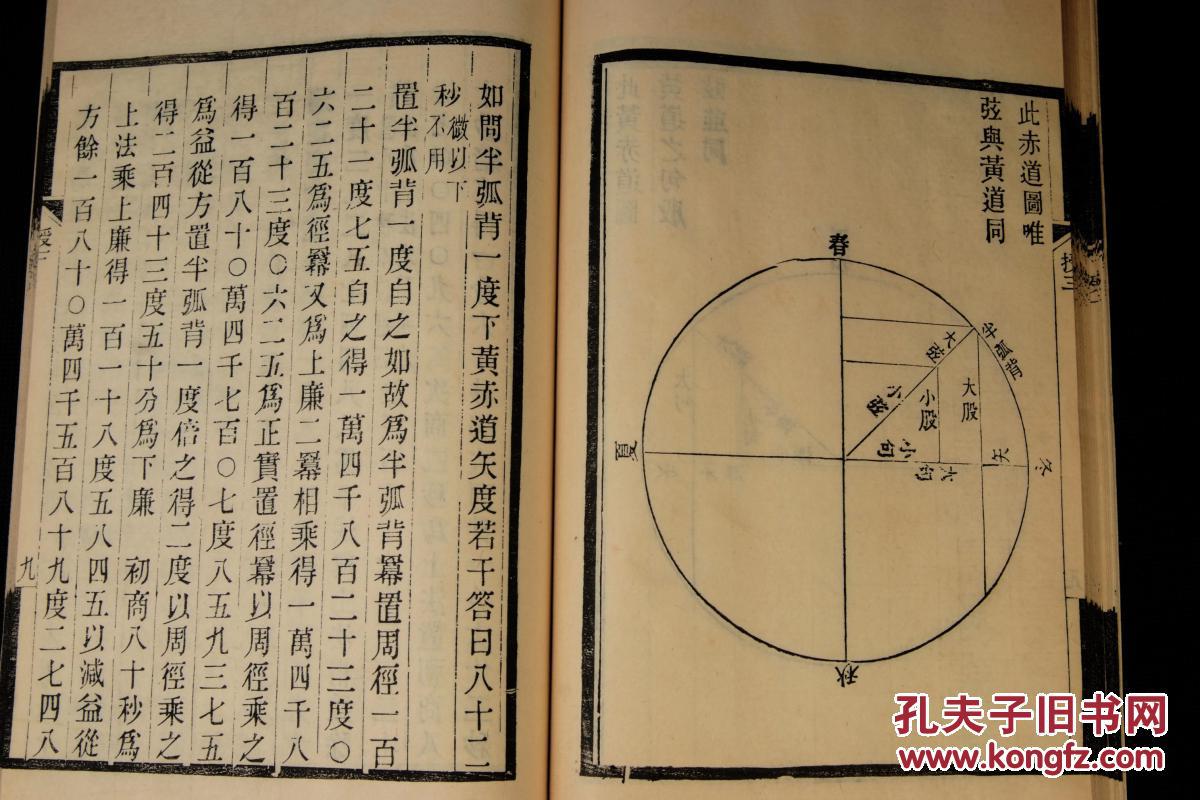 此赤道圖唯
弦與黃道同
春
半弧背
大弦
小弦
大股
小股
小句
大句
矢
冬
夏
秋
授三
如問半弧背一度下黃赤道矢度若干答曰八十二
秒微以下
不用
置半弧背一度自之如故為半弧背冪置周徑一百
二十一度七五自之得一萬四千八百二十三度〇
六二五為徑冪又為上廉二冪相乘得一萬四千八
百二十三度〇六二五為正實置徑冪以周徑乘之
得一百八十〇萬四千七百〇七度八五九三七五
為益從方置半弧背一度倍之得二度以周徑乘之
得二百四十三度五十分為下廉 初商八十秒為
上法乘上廉得一百一十八度五八四五以減益從
方餘一百八十〇萬四千五百八十九度二七四八
九
孔夫子旧书网
www.kongfz.com